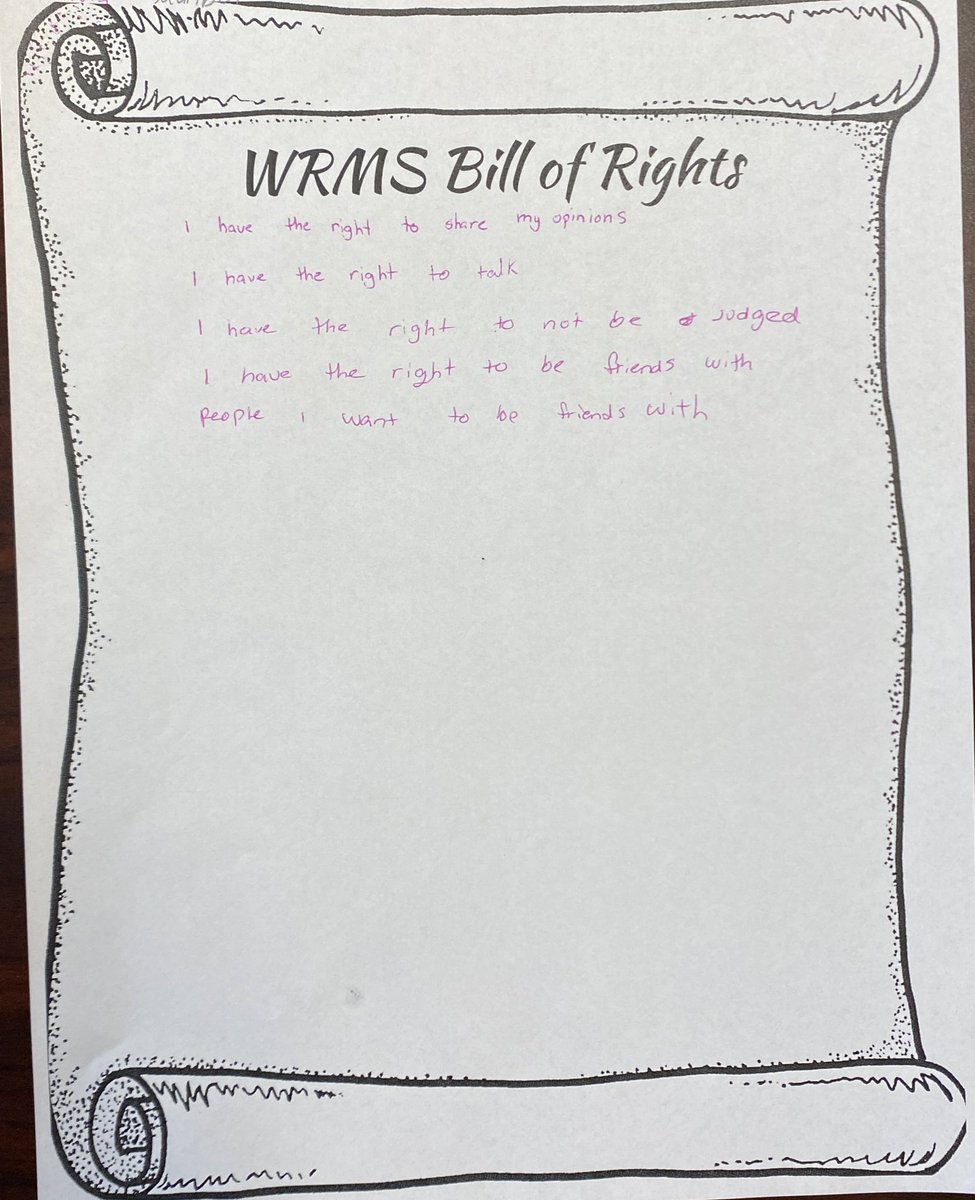 WRMS Bill of Rights
I have the right to share my opinions
I have the right to talk
I have the right to not be judged
I have the right to be friends with
people i want to be friends with